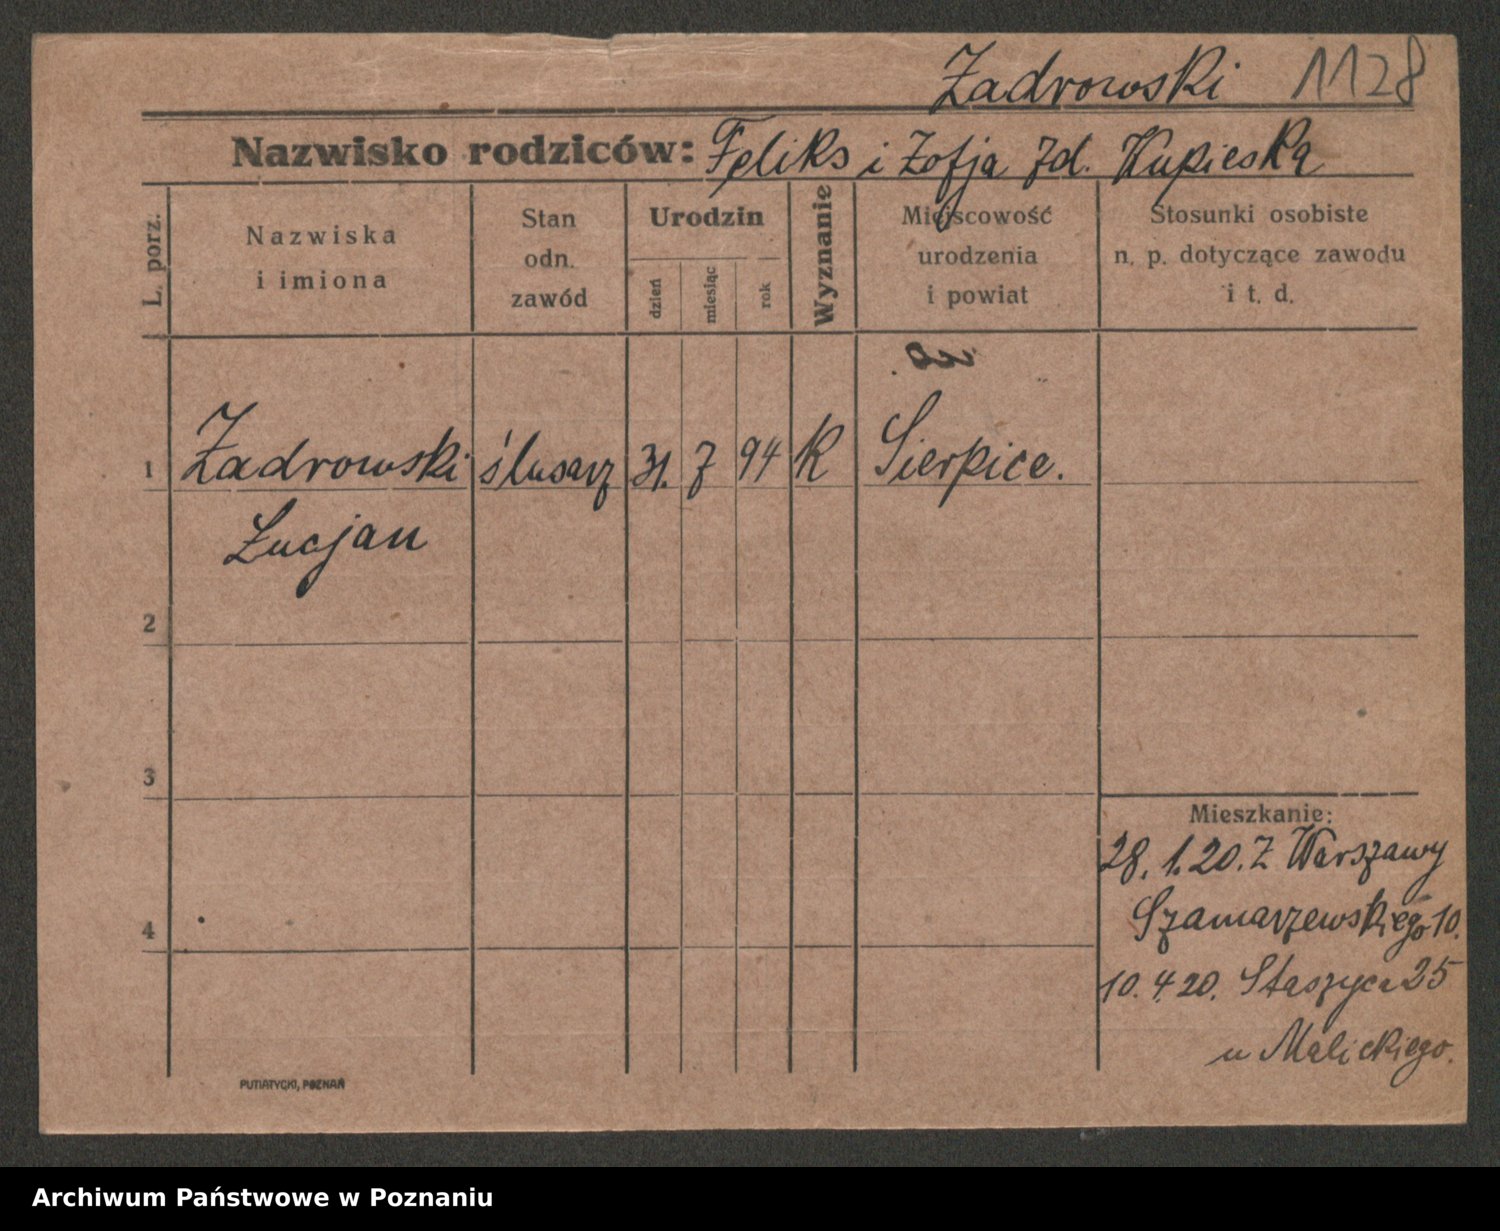 Zadrowski 1128
Nazwisko rodziców: Feliks i Zofja Zd. Kupieska
L. porz.
Nazwiska
i imiona
Stan
odn.
zawód
Urodzin
dzień
miesiąc
rok
Wyznanie
Miejscowość
urodzenia
i powiat
Stosunki osobiste
n. p. dotyczące zawodu
i t. d.
1 Zadrowski ślusarz 31. 7 94 K Sierpice.
Lucjan
2
3
4
Mieszkanie:
28. 1. 20. Z Warszawy
Szamarzewskiego 10.
10. 4. 20. Staszyca 25
u Malickiego.
PUTIATYCKI, POZNAŃ
Archiwum Państwowe w Poznaniu